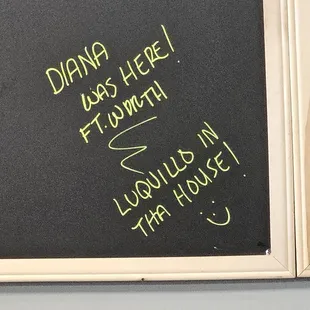 DIANA
WAS HERE!
FT. WORTH
LUQUILLO IN
THA HOUSE!